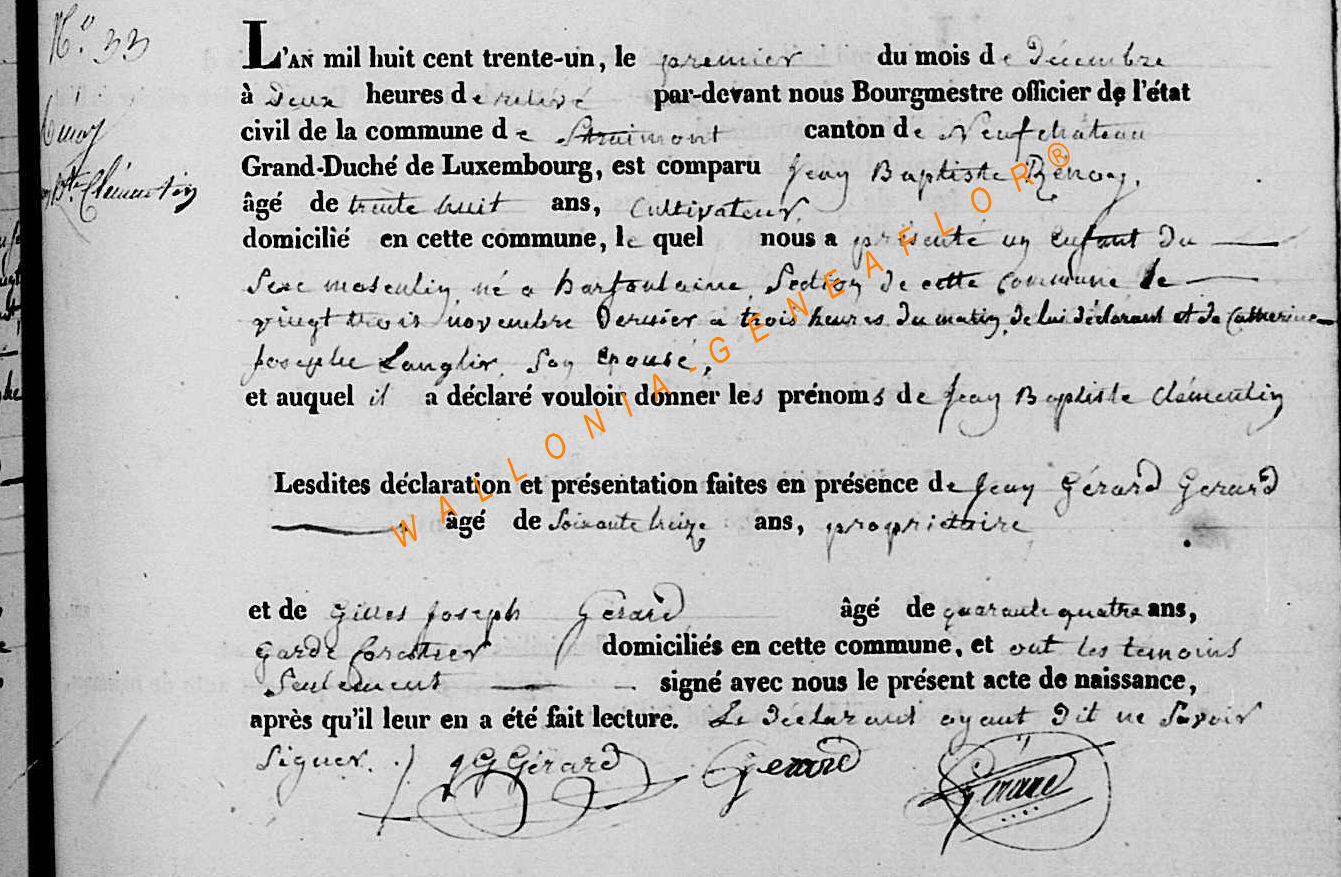 N.º 33
Bte Clémentin
L'AN mil huit cent trente-un, le premier du mois de Décembre
à Deux heures de relevé par-devant nous Bourgmestre officier de l'état
civil de la commune de Straimont canton de Neufchâteau
Grand-Duché de Luxembourg, est comparu Jean Baptiste Renoy,
âgé de trente huit ans, Cultivateur,
domicilié en cette commune, le quel nous a présenté un Enfant Du
Sexe masculin, né a harfontaine, Section de cette Commune le
vingt trois novembre Dernier a trois heures du matin, de lui déclarant et de Catherine
Josephe Langlir, Son Epouse,
et auquel il a déclaré vouloir donner les prénoms de Jean Baptiste Clémentin
Lesdites déclaration et présentation faites en présence de Jean Gérard Gerard
âgé de Soixante treize ans, propriétaire
et de Gilles Joseph Gérard âgé de quarante quatre ans,
Garde forestier domiciliés en cette commune, et ont les temoins
Seulement signé avec nous le présent acte de naissance,
après qu'il leur en a été fait lecture. Le Déclarant ayant Dit ne Savoir
Signer. JG Gérard Gerard Gérard
WALLONIA-GENEAFLOR®